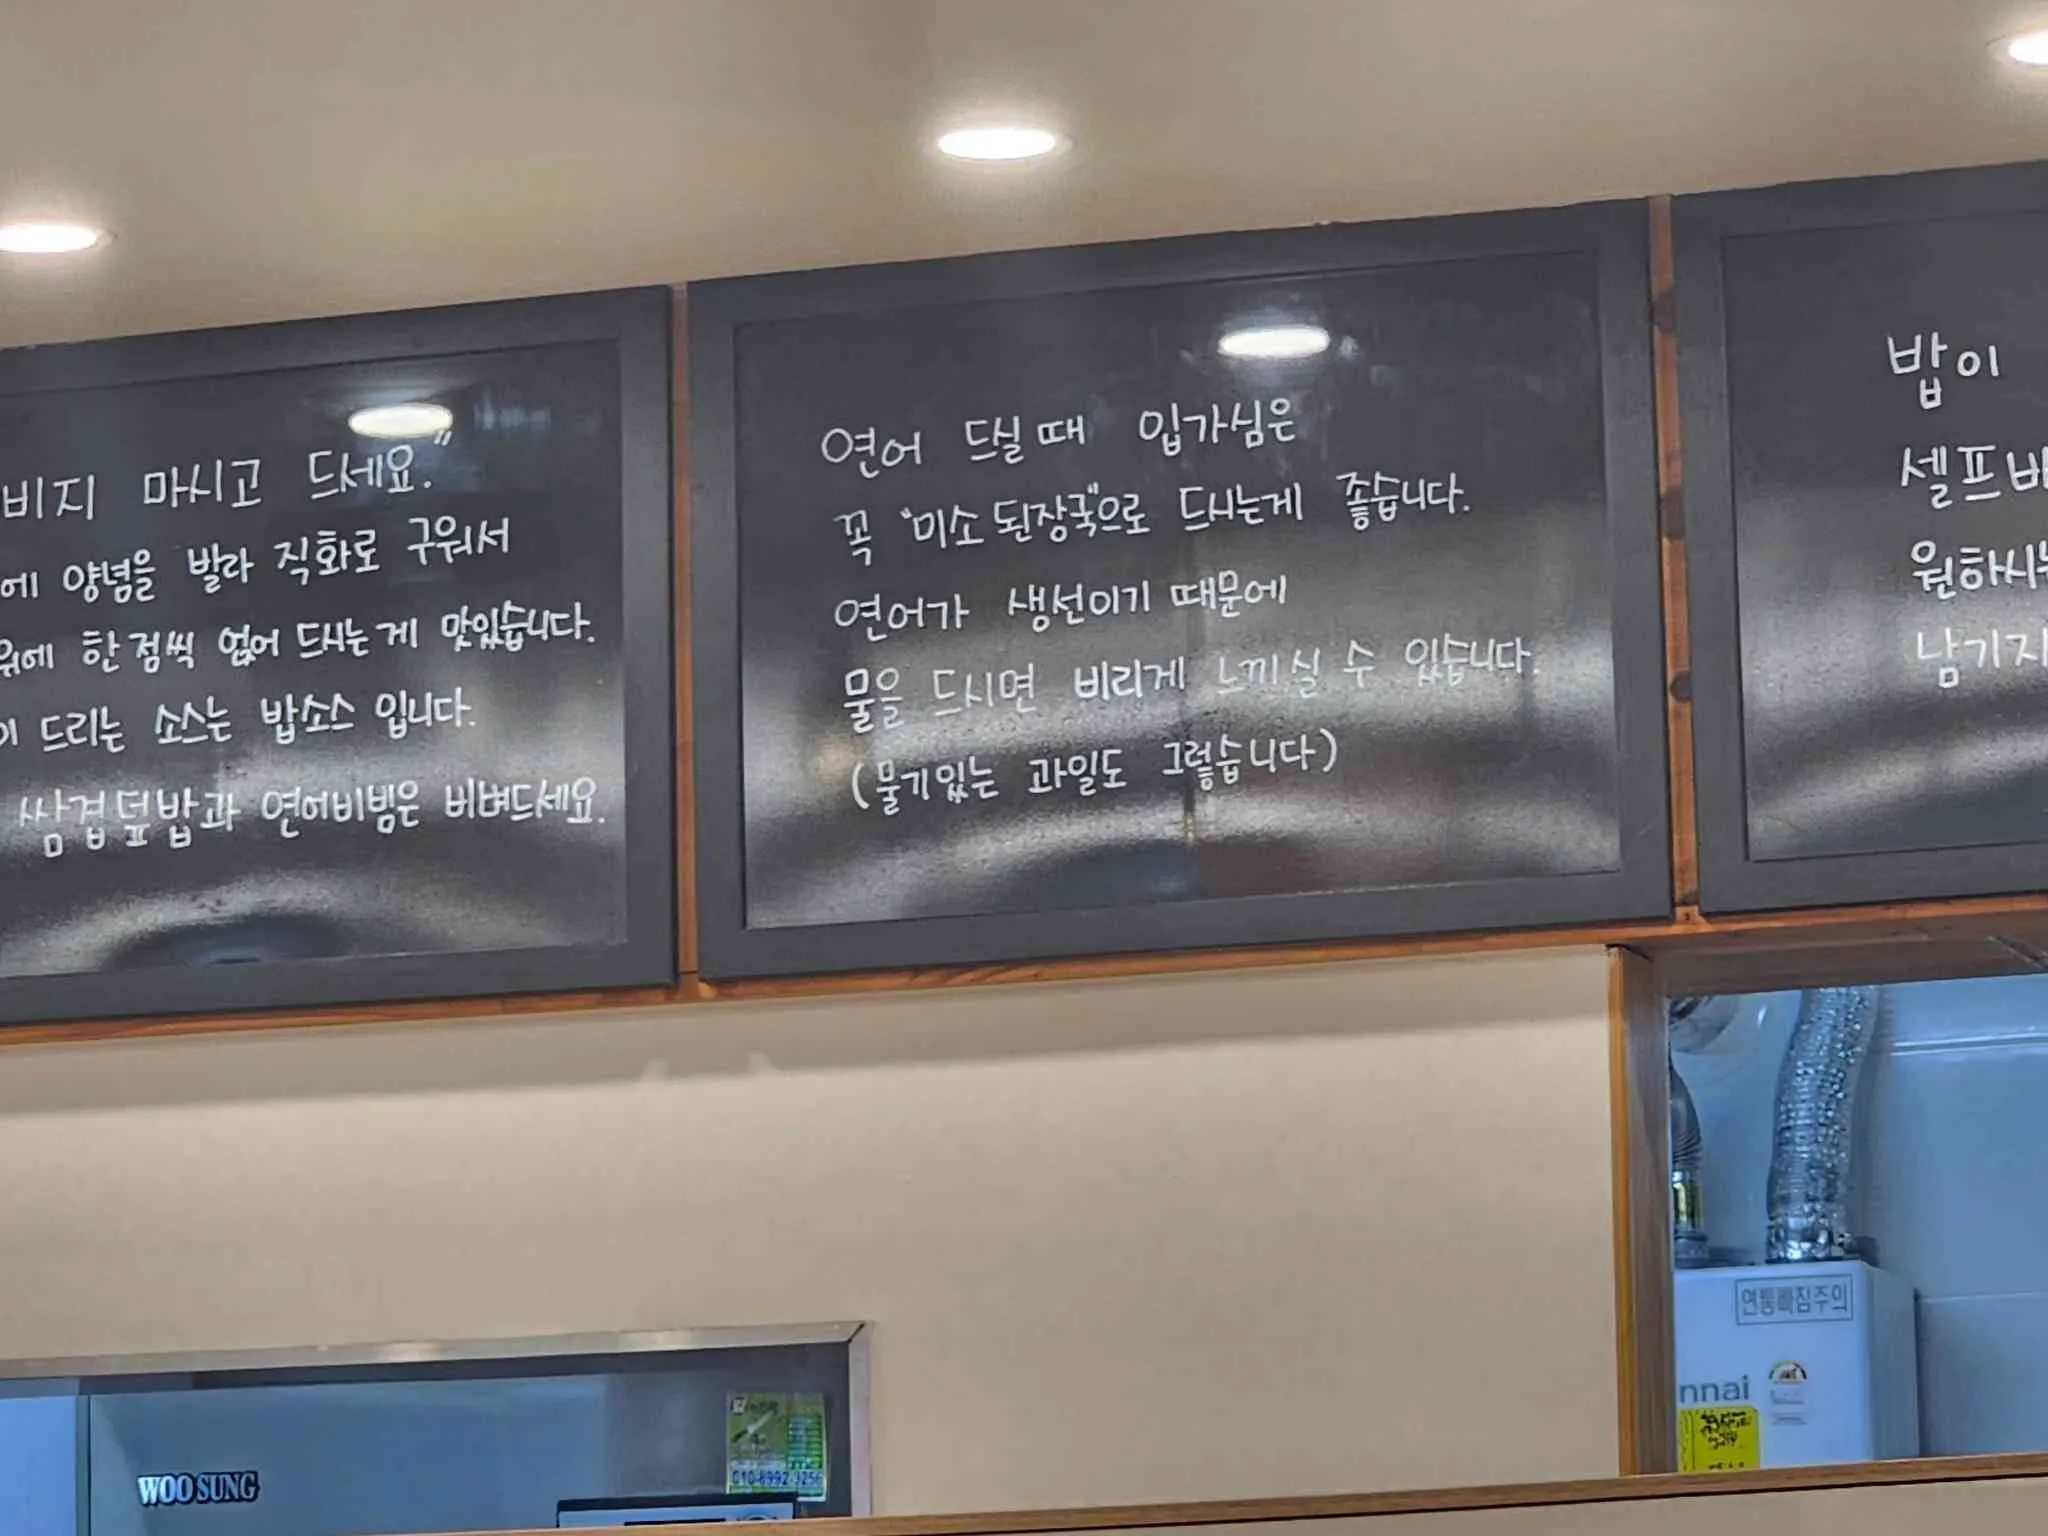 비지 마시고 드세요."
에 양념을 발라 직화로 구워서
위에 한점씩 얹어 드시는게 맛있습니다.
이 드리는 소스는 밥소스 입니다.
쌈겹덮밥과 연어비빔은 비벼드세요.
연어 드실때 입가심은
꼭 "미소된장국"으로 드시는게 좋습니다.
연어가 생선이기 때문에
물을 드시면 비리게 느끼실 수 있습니다.
(물기있는 과일도 그렇습니다)
밥이
셀프바
원하시는
남기지
연통빠짐주의
nnai
WOOSUNG
010-8992-3256